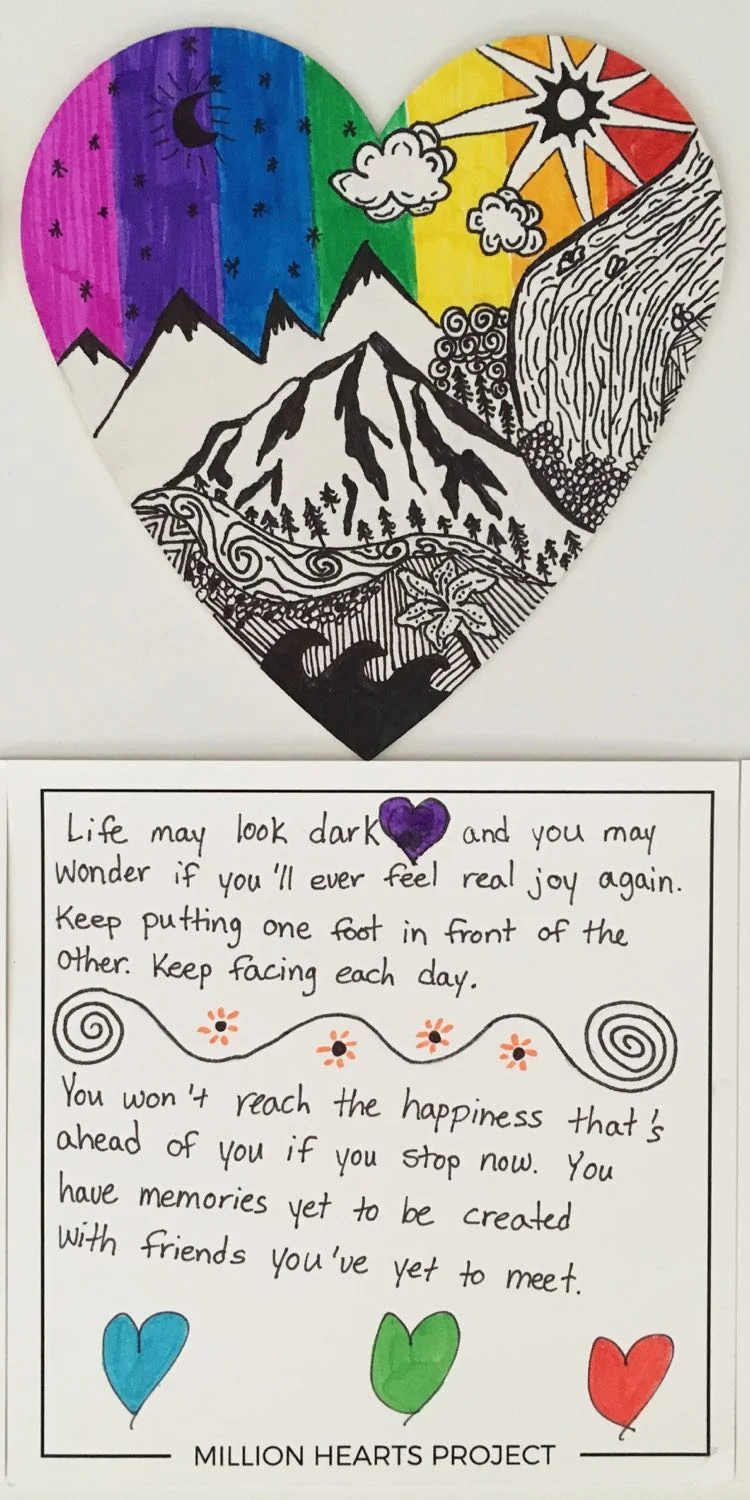 Life may look dark and you may
wonder if you'll ever feel real joy again.
Keep putting one foot in front of the
other. Keep facing each day.
You won't reach the happiness that's
ahead of you if you stop now. You
have memories yet to be created
with friends you've yet to meet.
MILLION HEARTS PROJECT